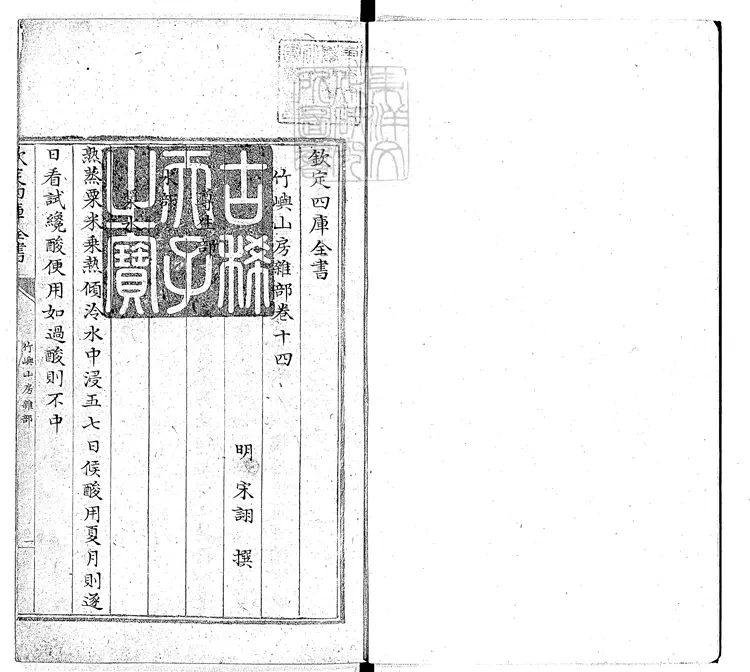 欽定四庫全書
竹嶼山房雜部卷十四
明 宋詡 撰
古稀
天子
之寶
尊生部
水部
漿水
熱蒸粟米乘熱傾冷水中浸五七日候酸用夏月則逐
日看試纔酸便用如過酸則不中
欽定四庫全書
竹嶼山房雜部
一